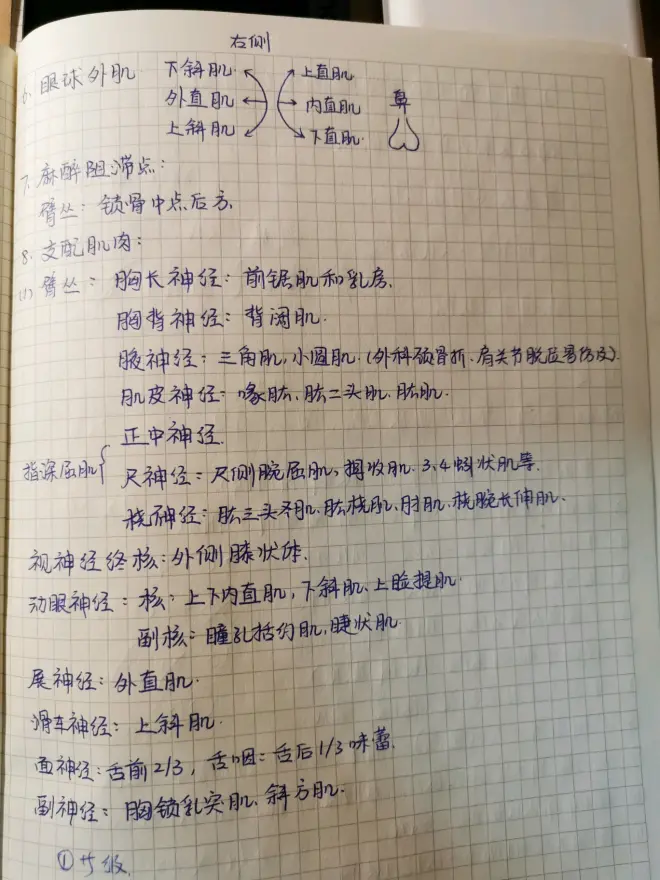 右侧
6. 眼球外肌 下斜肌 上直肌
外直肌 内直肌 鼻
上斜肌 下直肌
7. 麻醉阻滞点:
臂丛: 锁骨中点后方.
8. 支配肌肉:
(1) 臂丛: 胸长神经: 前锯肌和乳房.
胸背神经: 背阔肌.
腋神经: 三角肌, 小圆肌. (外科颈骨折、肩关节脱位易伤及).
肌皮神经: 喙肱、肱二头肌、肱肌.
正中神经.
指深屈肌
尺神经: 尺侧腕屈肌、拇收肌. 3、4蚓状肌等.
桡神经: 肱三头肌、肱桡肌、肘肌、桡腕长伸肌.
视神经终核: 外侧膝状体.
动眼神经: 核: 上下内直肌, 下斜肌、上睑提肌.
副核: 瞳孔括约肌, 睫状肌.
展神经: 外直肌.
滑车神经: 上斜肌.
面神经: 舌前2/3, 舌咽: 舌后1/3味蕾.
副神经: 胸锁乳突肌、斜方肌.
①